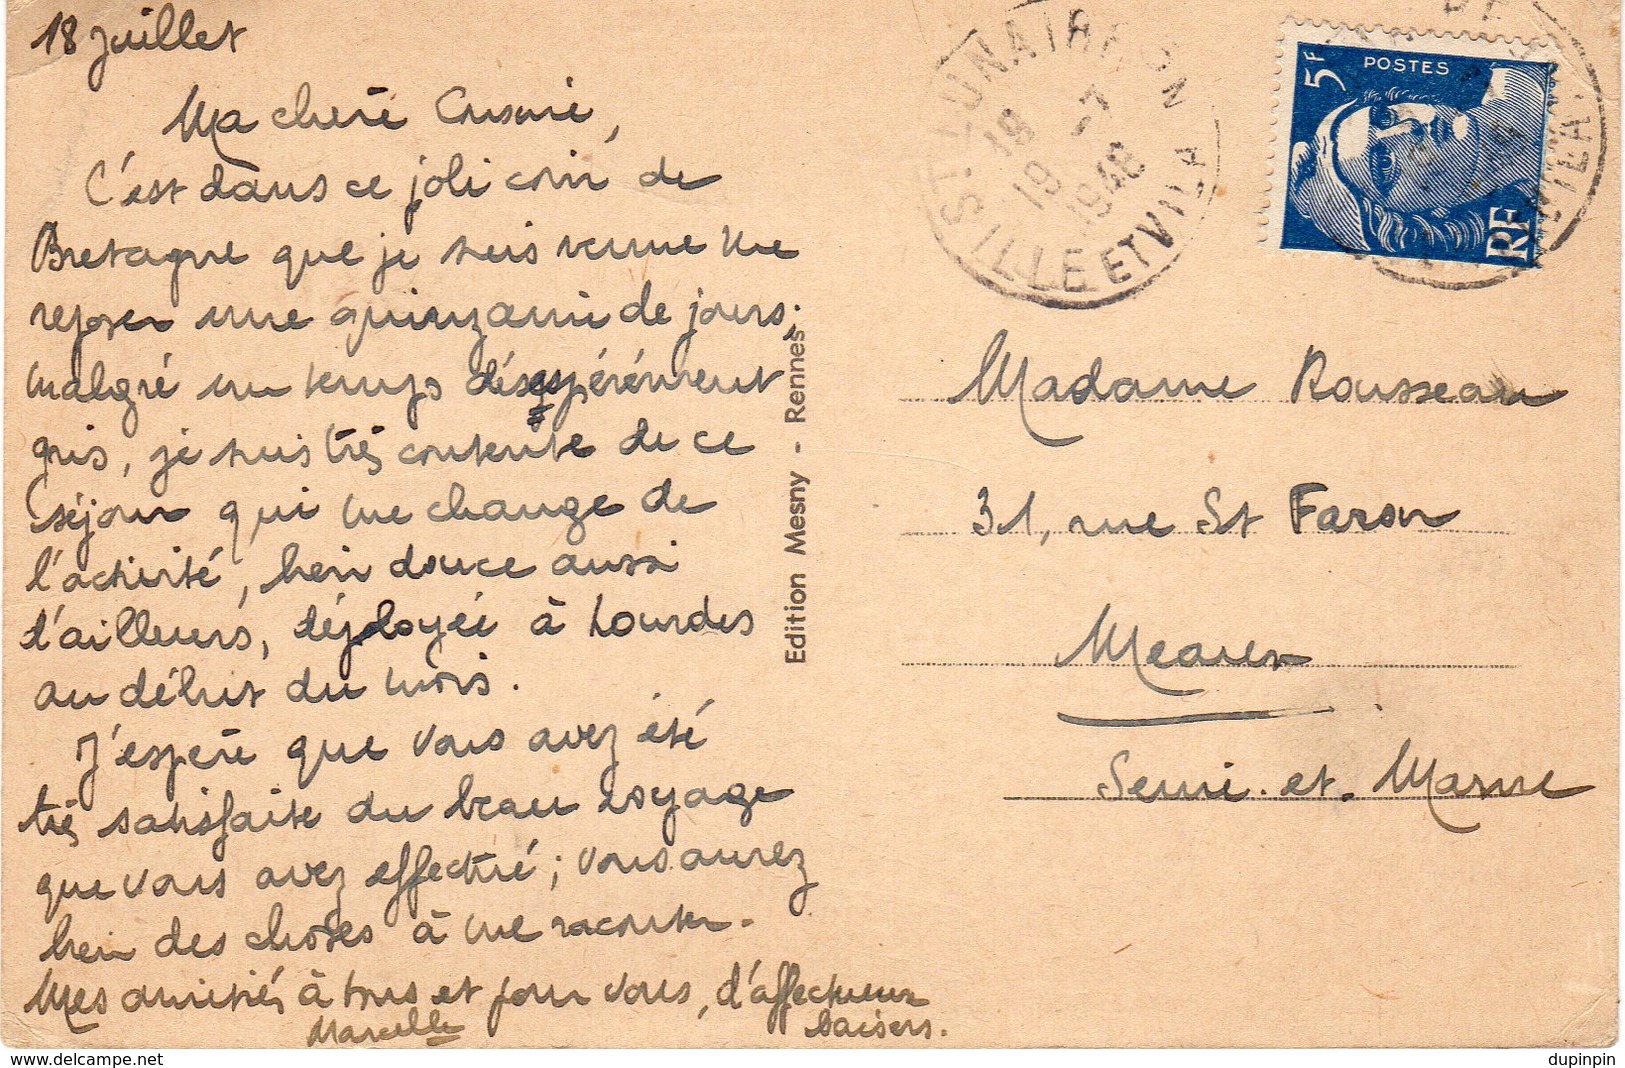 18 juillet
Ma chère Cousine,
C'est dans ce joli coin de
Bretagne que je suis venue me
reposer une quinzaine de jours.
Malgré un temps désespérément
gris, je suis très contente de ce
séjour qui me change de
l'activité, bien douce aussi
d'ailleurs, déployée à Lourdes
au début du mois.
J'espère que vous avez été
très satisfaite du beau voyage
que vous avez effectué ; vous aurez
bien des choses à me raconter.
Mes amitiés à tous et pour vous, d'affectueux
baisers.
Marcelle
Edition Mesny - Rennes
ST. LUNAIRE
ILLE ET VILA
19 -7
1948
5F
POSTES
RF
Madame Rousseau
31, rue St Faron
Meaux
Seine-et-Marne
dupinpin